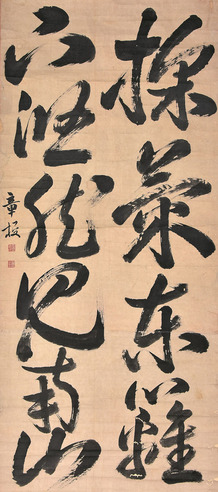 採菊东籬
下悠然見南山
章授